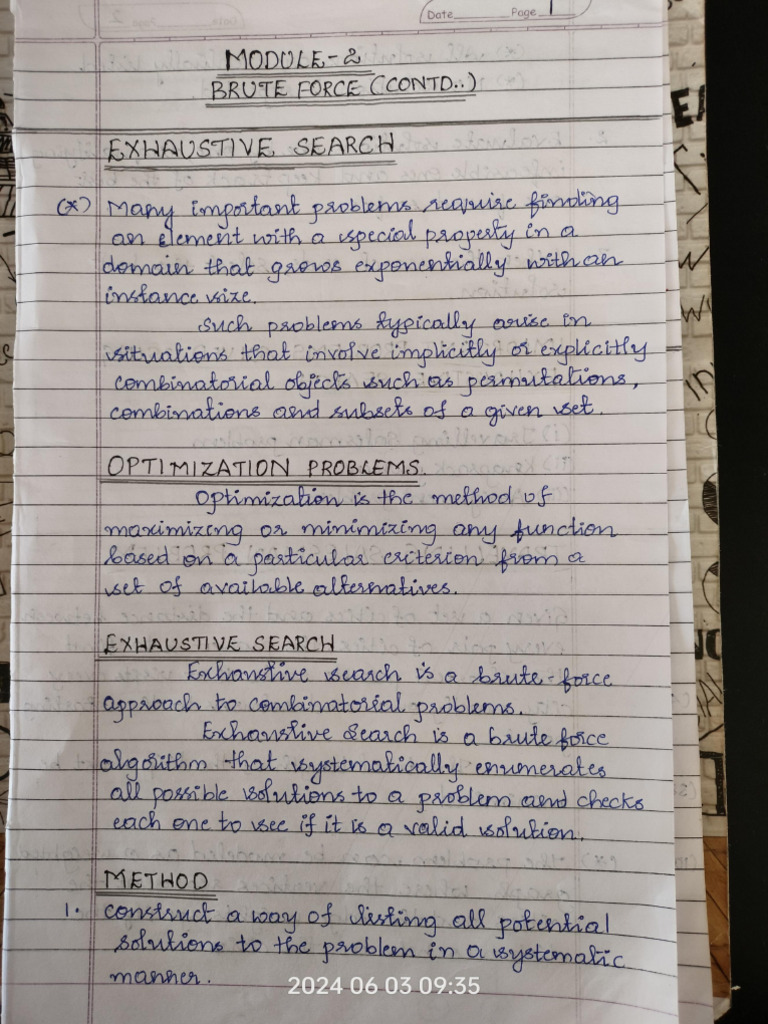 Date Page 1
MODULE-2
BRUTE FORCE (CONTD..)
EXHAUSTIVE SEARCH
(*) Many important problems require finding
an element with a special property in a
domain that grows exponentially with an
instance size.
Such problems typically arise in
situations that involve implicitly or explicitly
combinatorial objects such as permutations,
combinations and subsets of a given set.
OPTIMIZATION PROBLEMS.
Optimization is the method of
maximizing or minimizing any function
based on a particular criterion from a
set of available alternatives.
EXHAUSTIVE SEARCH
Exhaustive search is a brute-force
approach to combinatorial problems.
Exhaustive Search is a brute force
algorithm that systematically enumerates
all possible solutions to a problem and checks
each one to see if it is a valid solution.
METHOD
1. construct a way of listing all potential
solutions to the problem in a systematic
manner.
2024 06 03 09:35